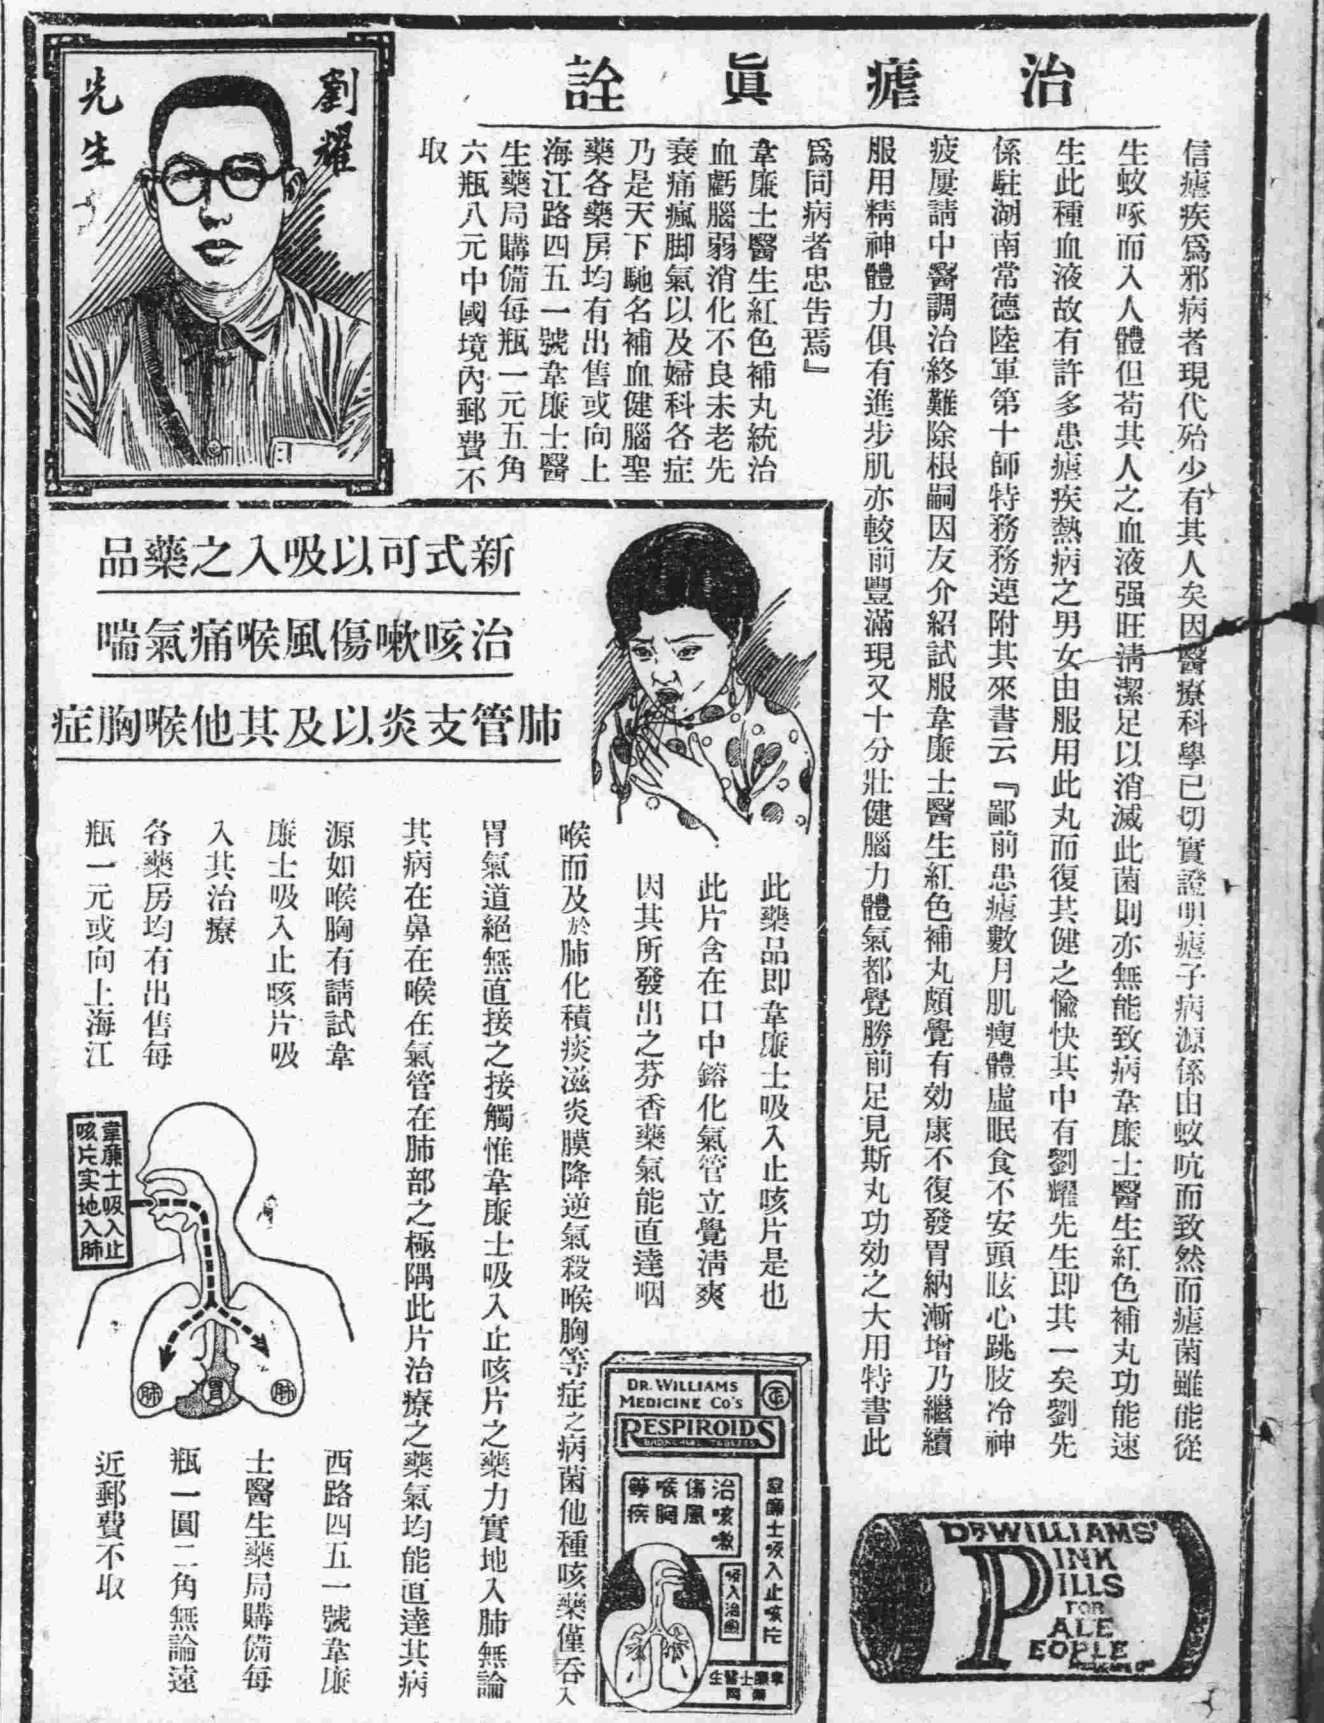 治瘧眞詮
信瘧疾爲邪病者現代殆少有其人矣因醫療科學已切實證明瘧子病源係由蚊吭而致然而瘧菌雖能從
生蚊啄而入人體但苟其人之血液强旺淸潔足以消滅此菌則亦無能致病韋廉士醫生紅色補丸功能速
生此種血液故有許多患瘧疾熱病之男女由服用此丸而復其健之愉快其中有劉耀先生即其一矣劉先
係駐湖南常德陸軍第十師特務務連附其來書云『鄙前患瘧數月肌瘦體虛眠食不安頭眩心跳肢冷神
疲屢請中醫調治終難除根嗣因友介紹試服韋廉士醫生紅色補丸頗覺有効康不復發胃納漸增乃繼續
服用精神體力俱有進步肌亦較前豐滿現又十分壯健腦力體氣都覺勝前足見斯丸功効之大用特書此
爲同病者忠告焉』
韋廉士醫生紅色補丸統治
血虧腦弱消化不良未老先
衰痛瘋脚氣以及婦科各症
乃是天下馳名補血健腦聖
藥各藥房均有出售或向上
海江路四五一號韋廉士醫
生藥局購備每瓶一元五角
六瓶八元中國境內郵費不
取
劉耀
先生
DR WILLIAMS'
PINK
PILLS
FOR
PALE
PEOPLE
新式可以吸入之藥品
治咳嗽傷風喉痛氣喘
肺管支炎以及其他喉胸症
此藥品即韋廉士吸入止咳片是也
此片含在口中鎔化氣管立覺淸爽
因其所發出之芬香藥氣能直達咽
喉而及於肺化積痰滋炎膜降逆氣殺喉胸等症之病菌他種咳藥僅吞入
胃氣道絕無直接之接觸惟韋廉士吸入止咳片之藥力實地入肺無論
其病在鼻在喉在氣管在肺部之極隅此片治療之藥氣均能直達其病
源如喉胸有請試韋
廉士吸入止咳片吸
入其治療
各藥房均有出售每
瓶一元或向上海江
西路四五一號韋廉
士醫生藥局購備每
瓶一圓二角無論遠
近郵費不取
韋廉士吸入止
咳片实地入肺
肺
胃
肺
DR. WILLIAMS
MEDICINE CO'S
RESPIROIDS
治咳嗽
傷風
喉胸
等疾
吸入治療
韋廉士吸入止咳片
韋廉士醫生
藥局